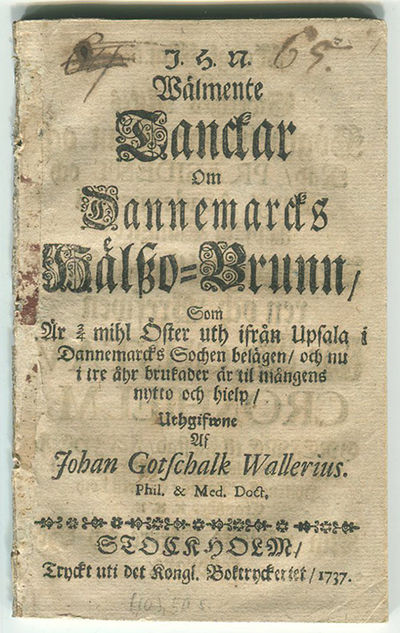 65.
J. H. N.
Wälmente
Tanckar
Om
Dannemarcks
Hälßo-Brunn/
Som
Är 3/4 mihl Öster uth ifrån Upsala i
Dannemarcks Sochen belägen/ och nu
i tre åhr brukader är til mångens
nytto och hielp/
Uthgifwne
Af
Johan Gotschalk Wallerius.
Phil. & Med. Doct.
STOCKHOLM/
Tryckt uti det Kongl. Boktryckeriet/ 1737.